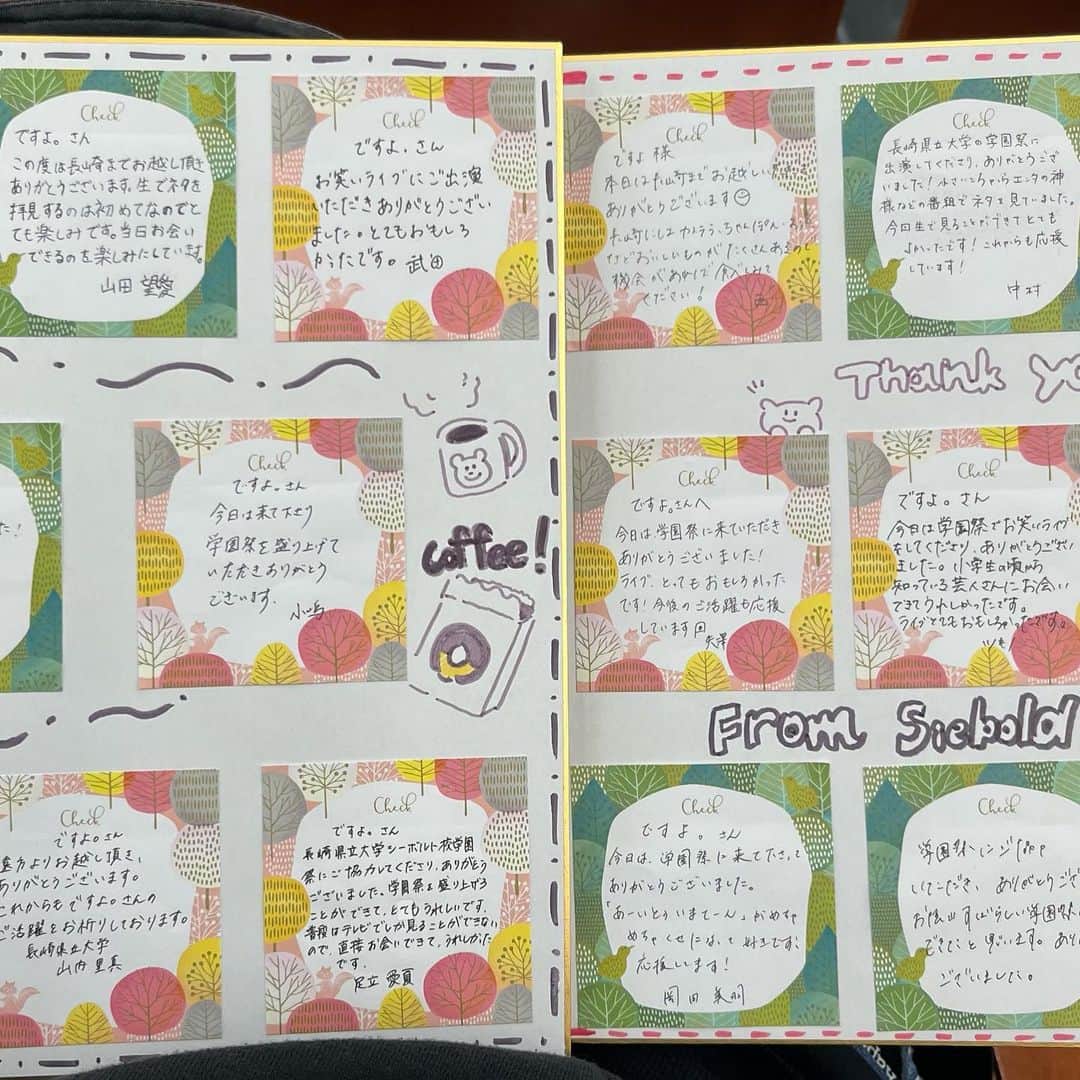 Check
ですよ。さん
この度は長崎までお越し頂き
ありがとうございます。生でネタを
拝見するのは初めてなのでと
ても楽しみです。当日お会い
できるのを楽しみにしています。
山田 望愛
Check
ですよ。さん
お笑いライブにご出演
いただきありがとうござい
ました。とてもおもしろ
かったです。 武田
Check
ですよ。さん
今日は来て下さり
学園祭を盛り上げて
いただきありがとう
ございます。
小嶋
coffee!
た!
Check
ですよ。さん
遠方よりお越し頂き、
ありがとうございます。
これからもですよ。さんの
ご活躍をお祈りしております。
長崎県立大学
山内 里真
Check
ですよ。さん
長崎県立大学シーボルト校学園
祭にご協力してくださり、ありがとう
ございました。学園祭を盛り上げる
ことができて、とてもうれしいです。
普段はテレビでしか見ることができない
ので、直接お会いできて、うれしかった
です。
足立 愛夏
Check
ですよ様
本日は長崎までお越しいただき
ありがとうございます
長崎にはカステラ、ちゃんぽん
などおいしいものがたくさんあるので
機会があれば食べてみて
ください!
Check
長崎県立大学の学園祭に
出演してくださり、ありがとうござ
いました!小さいころからエンタの神
様などの番組でネタを見ていました。
今回生で見ることができてとても
よかったです!これからも応援
しています!
中村
Thank yo
Check
ですよ。さんへ
今日は学園祭に来ていただき
ありがとうございました!
ライブ、とってもおもしろかった
です!今後のご活躍も応援
しています
Check
ですよ。さん
今日は学園祭でお笑いライブ
をしてくださり、ありがとうござい
ました。小学生の頃から
知っている芸人さんにお会い
できてうれしかったです。
ライブとてもおもしろかったです。
From Siebold
Check
ですよ。さん
今日は、学園祭に来て下さって
ありがとうございました。
「あーいとぅいまてーん」がめちゃ
めちゃくせになって好きです、
応援してます!
岡田
Check
学園祭に
していただき、ありがとうござ
お陰ですばらしい学園祭に
できたと思います。あり
ございました。